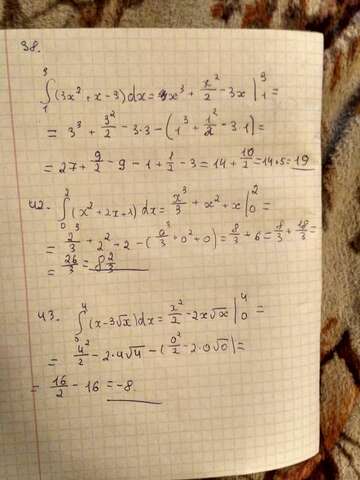 38.
∫₁³ (3x² + x - 3) dx = x³ + x²/2 - 3x |₁³ =
= 3³ + 3²/2 - 3·3 - (1³ + 1²/2 - 3·1) =
= 27 + 9/2 - 9 - 1 + 1/2 - 3 = 14 + 10/2 = 14 + 5 = 19
42. ∫₀² (x² + 2x + 1) dx = x³/3 + x² + x |₀² =
= 2³/3 + 2² + 2 - (0³/3 + 0² + 0) = 8/3 + 6 = 8/3 + 18/3 =
= 26/3 = 8 2/3
43. ∫₀⁴ (x - 3√x) dx = x²/2 - 2x√x |₀⁴ =
= 4²/2 - 2·4√4 - (0²/2 - 2·0√0) =
= 16/2 - 16 = -8